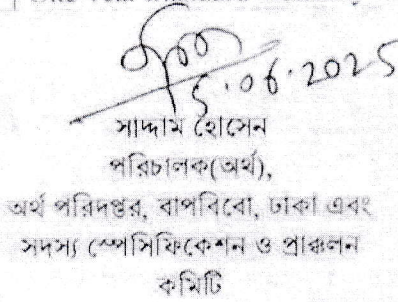 5.06.2025
সাদ্দাম হোসেন
পরিচালক(অর্থ),
অর্থ পরিদপ্তর, বাপবিবো, ঢাকা এবং
সদস্য স্পেসিফিকেশন ও প্রাক্কলন
কমিটি